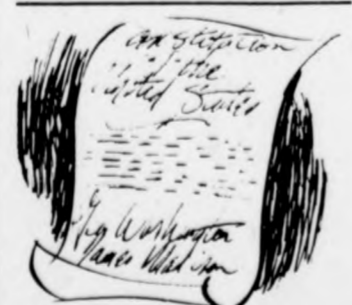 Constitution
of the
United States
Geo Washington
James Madison